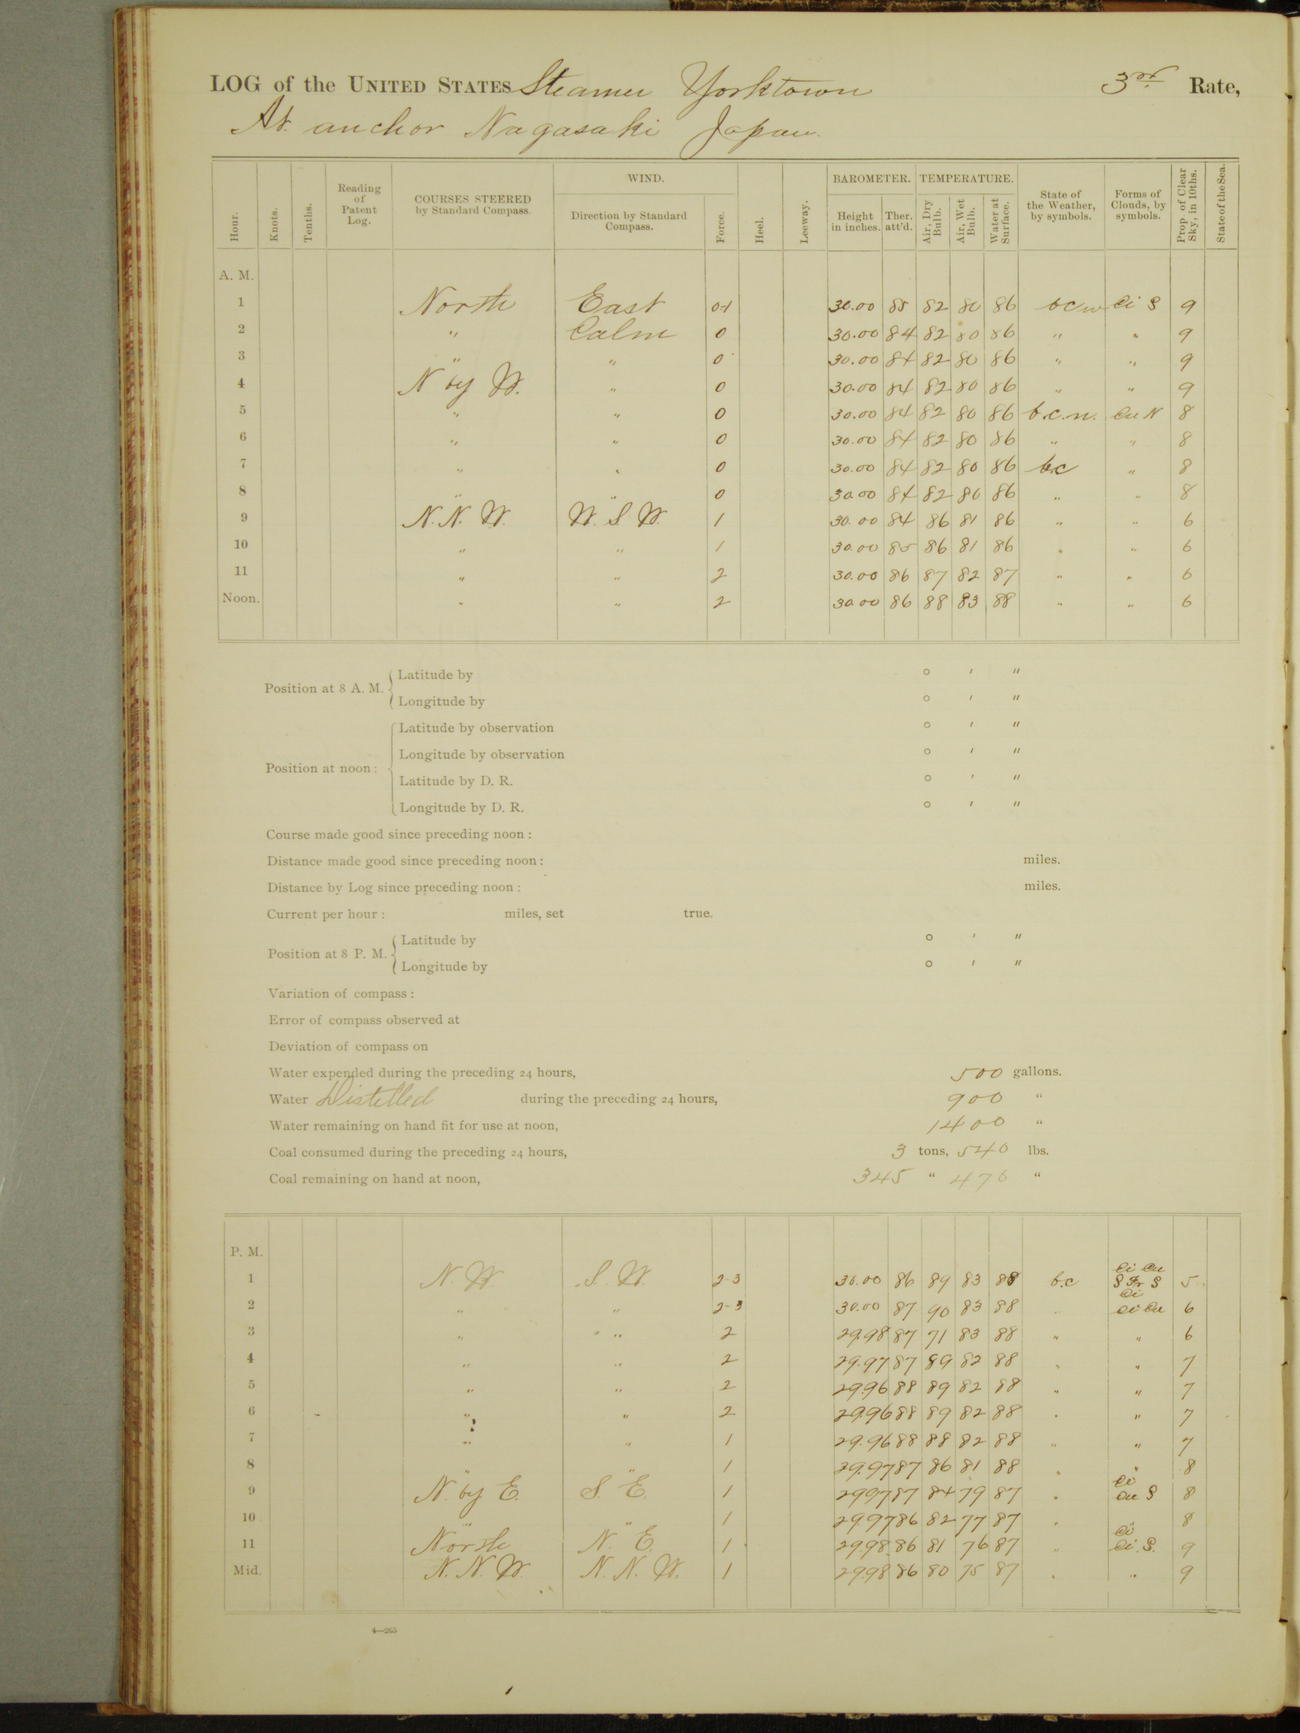 LOG of the UNITED STATES Steamer Yorktown 3rd Rate,
At anchor Nagasaki Japan.
Hour. Knots. Tenths. Reading of Patent Log. COURSES STEERED by Standard Compass. WIND. Direction by Standard Compass. Force. Heel. Leeway. BAROMETER. Height in inches. Ther. att'd. TEMPERATURE. Air, Dry Bulb. Air, Wet Bulb. Water at Surface. State of the Weather, by symbols. Forms of Clouds, by symbols. Prop. of Clear Sky, in 10ths. State of the Sea.
A. M.
1 North East 0-1 30.00 85 82 80 86 bcw Ci S 9
2 " Calm 0 30.00 84 82 80 86 " " 9
3 " " 0 30.00 84 82 80 86 " " 9
4 N by W. " 0 30.00 84 82 80 86 " " 9
5 " " 0 30.00 84 82 80 86 Cu N 8
6 " " 0 30.00 84 82 80 86 " " 8
7 " " 0 30.00 84 82 80 86 bc " 8
8 " " 0 30.00 84 82 80 86 " " 8
9 N. N. W. W. S. W. 1 30.00 84 86 81 86 " " 6
10 " " 1 30.00 85 86 81 86 " " 6
11 " " 2 30.00 86 87 82 87 " " 6
Noon. " " 2 30.00 86 88 83 88 " " 6
Position at 8 A. M. Latitude by ° ′ ″
Longitude by ° ′ ″
Position at noon : Latitude by observation ° ′ ″
Longitude by observation ° ′ ″
Latitude by D. R. ° ′ ″
Longitude by D. R. ° ′ ″
Course made good since preceding noon :
Distance made good since preceding noon : miles.
Distance by Log since preceding noon : miles.
Current per hour : miles, set true.
Position at 8 P. M. Latitude by ° ′ ″
Longitude by ° ′ ″
Variation of compass :
Error of compass observed at
Deviation of compass on
Water expended during the preceding 24 hours, 500 gallons.
Water Distilled during the preceding 24 hours, 900 "
Water remaining on hand fit for use at noon, 1400 "
Coal consumed during the preceding 24 hours, 3 tons, 540 lbs.
Coal remaining on hand at noon, 345 " 476 "
P. M.
1 N. W. S. W. 2-3 30.00 86 89 83 88 b.c Ci Cu S Fr S 5
2 " " 2-3 30.00 87 90 83 88 " Ci Ci Cu 6
3 " " 2 29.98 87 71 83 88 " " 6
4 " " 2 29.97 87 89 82 88 " " 7
5 " " 2 29.96 88 89 82 88 " " 7
6 " " 2 29.96 88 89 82 88 " " 7
7 " " 1 29.96 88 88 82 88 " " 7
8 " " 1 29.97 87 86 81 88 " " 8
9 N. by E. S. E. 1 29.97 87 84 79 87 " Ci Cu S 8
10 " " 1 29.97 86 82 77 87 " " 8
11 North N. E. 1 29.98 86 81 76 87 " Ci Ci. S. 9
Mid. N. N. W. N. N. W. 1 29.98 86 80 75 87 " " 9
4—265